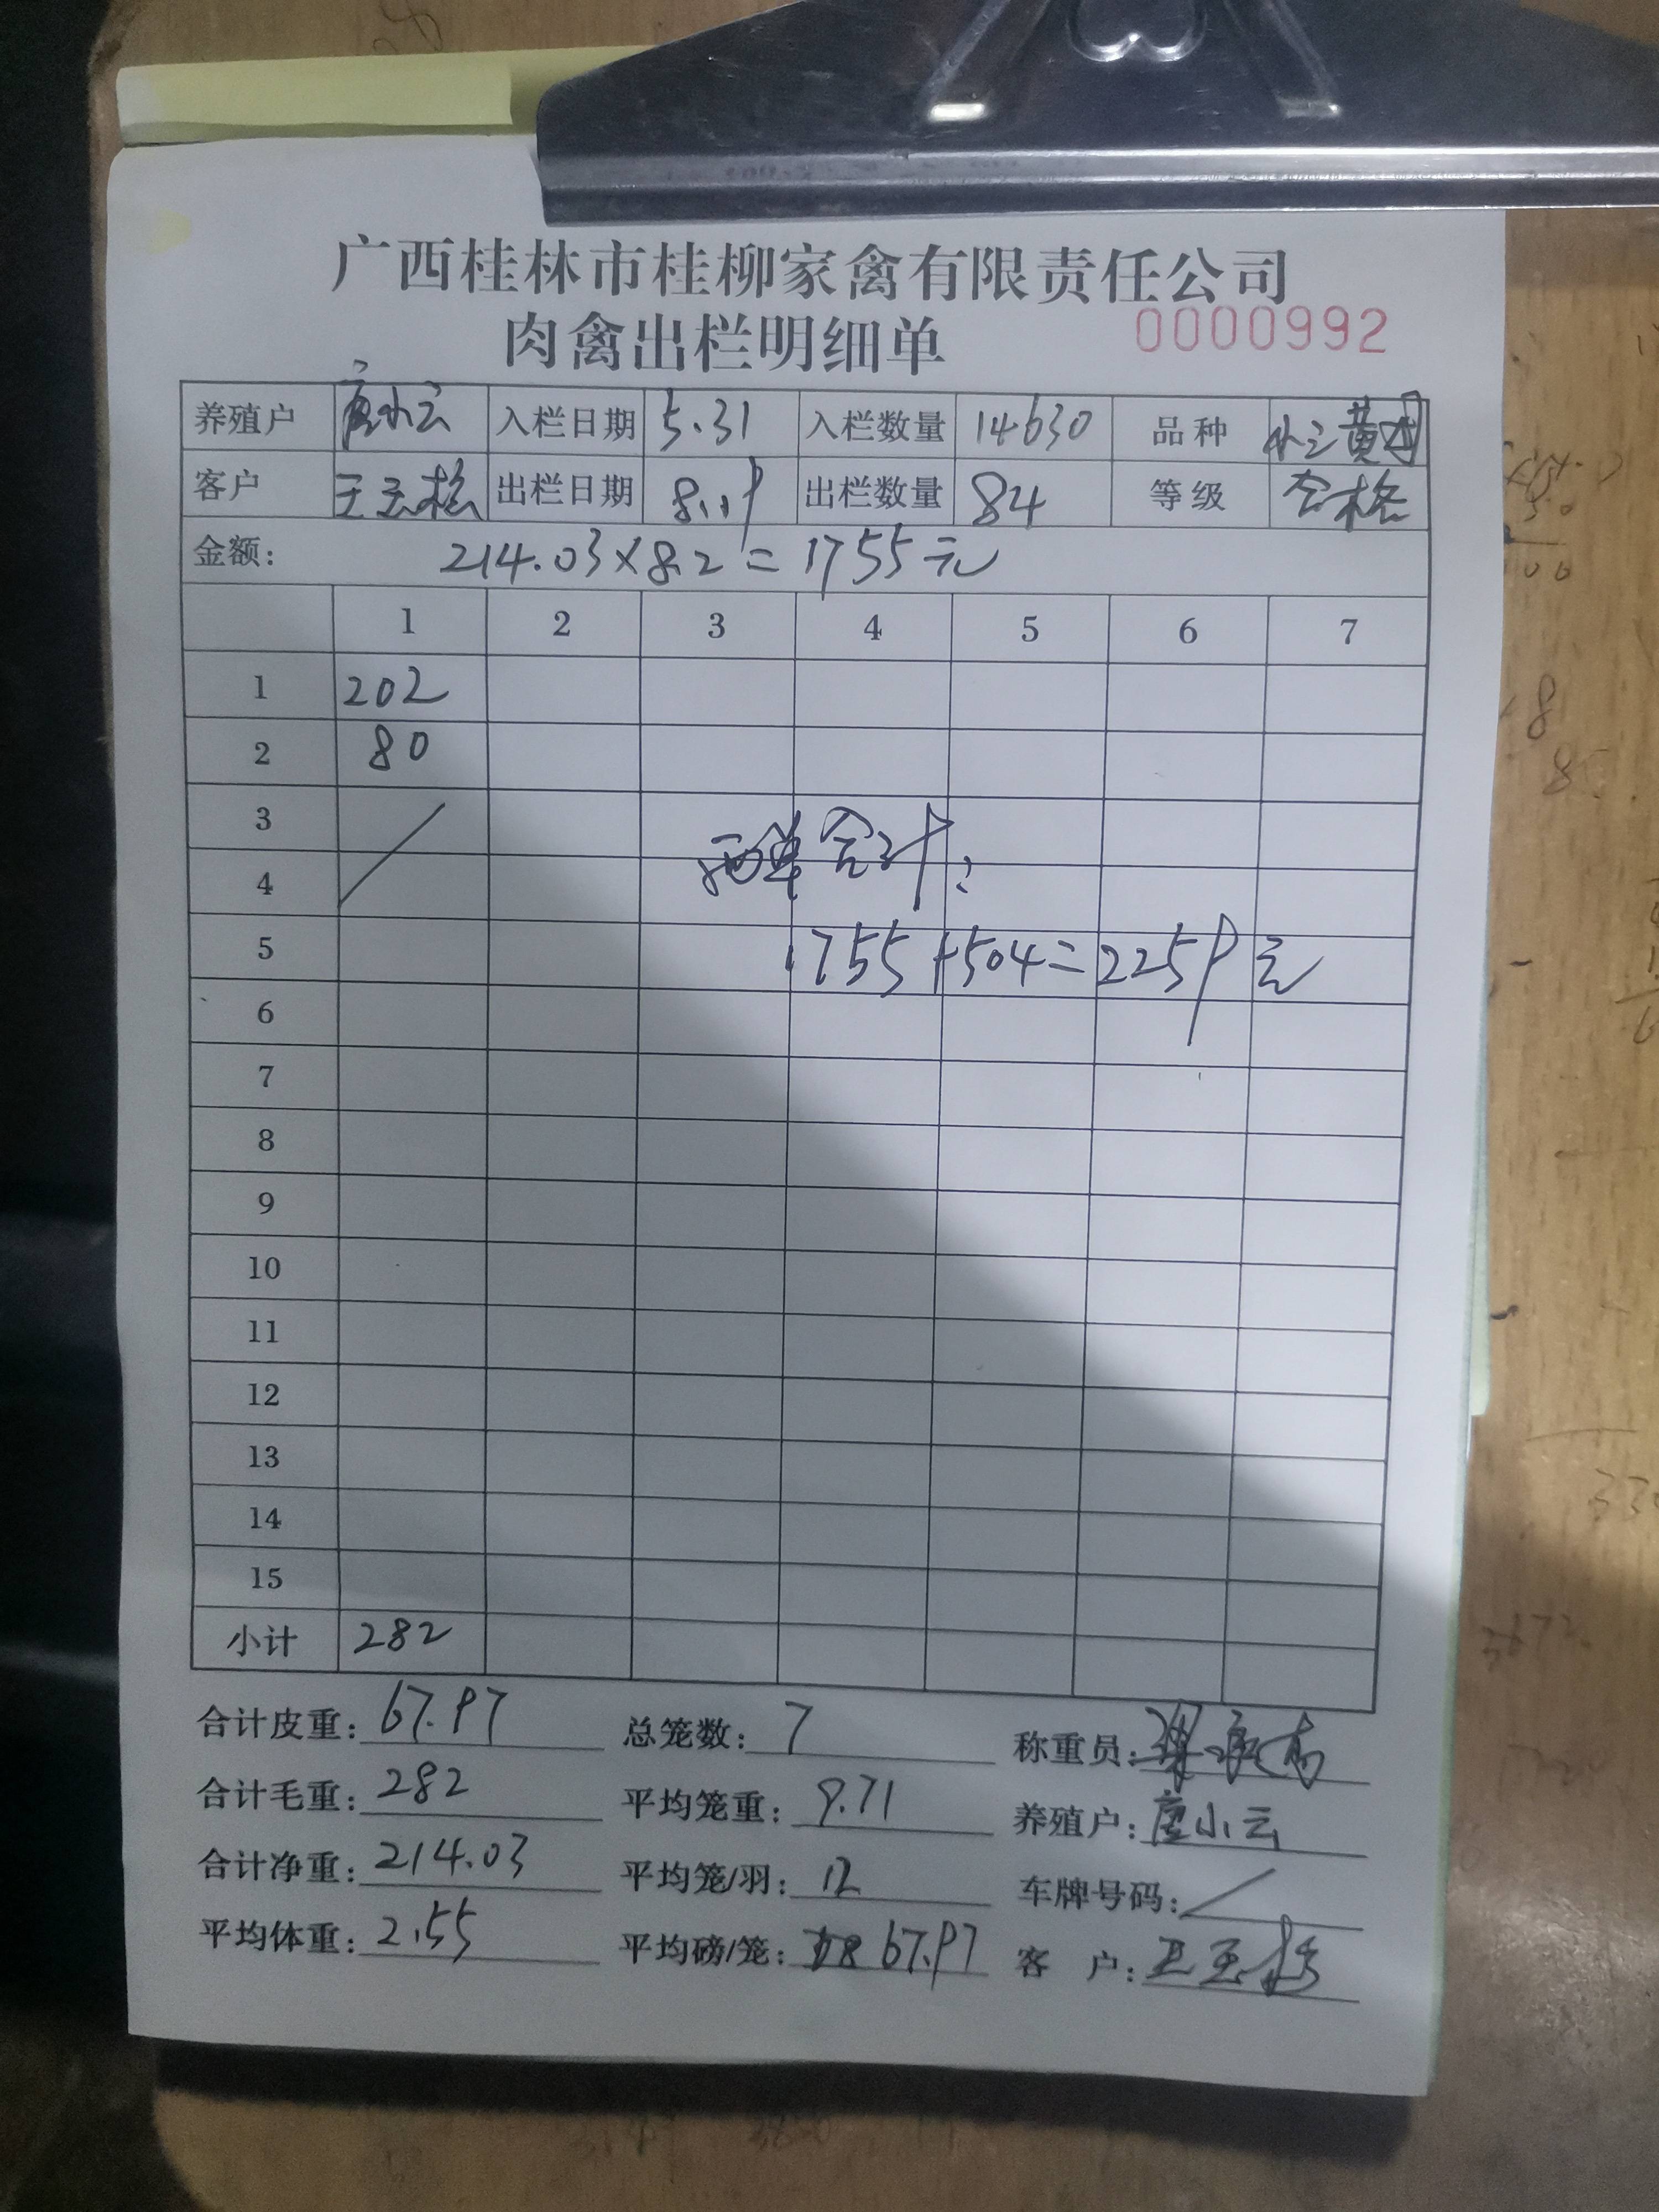 广西桂林市桂柳家禽有限责任公司
肉禽出栏明细单 0000992
养殖户 唐小云 入栏日期 5.31 入栏数量 14630 品种
客户 出栏日期 8.19 出栏数量 84 等级 合格
金额: 214.03×8.2=1755元
1 2 3 4 5 6 7
1 202
2 80
3
4
两单合计:
5 1755+504=2259元
6
7
8
9
10
11
12
13
14
15
小计 282
合计皮重: 67.97 总笼数: 7 称重员:
合计毛重: 282 平均笼重: 9.71 养殖户: 唐小云
合计净重: 214.03 平均笼/羽: 12 车牌号码: /
平均体重: 2.55 平均磅/笼: 67.97 客户: